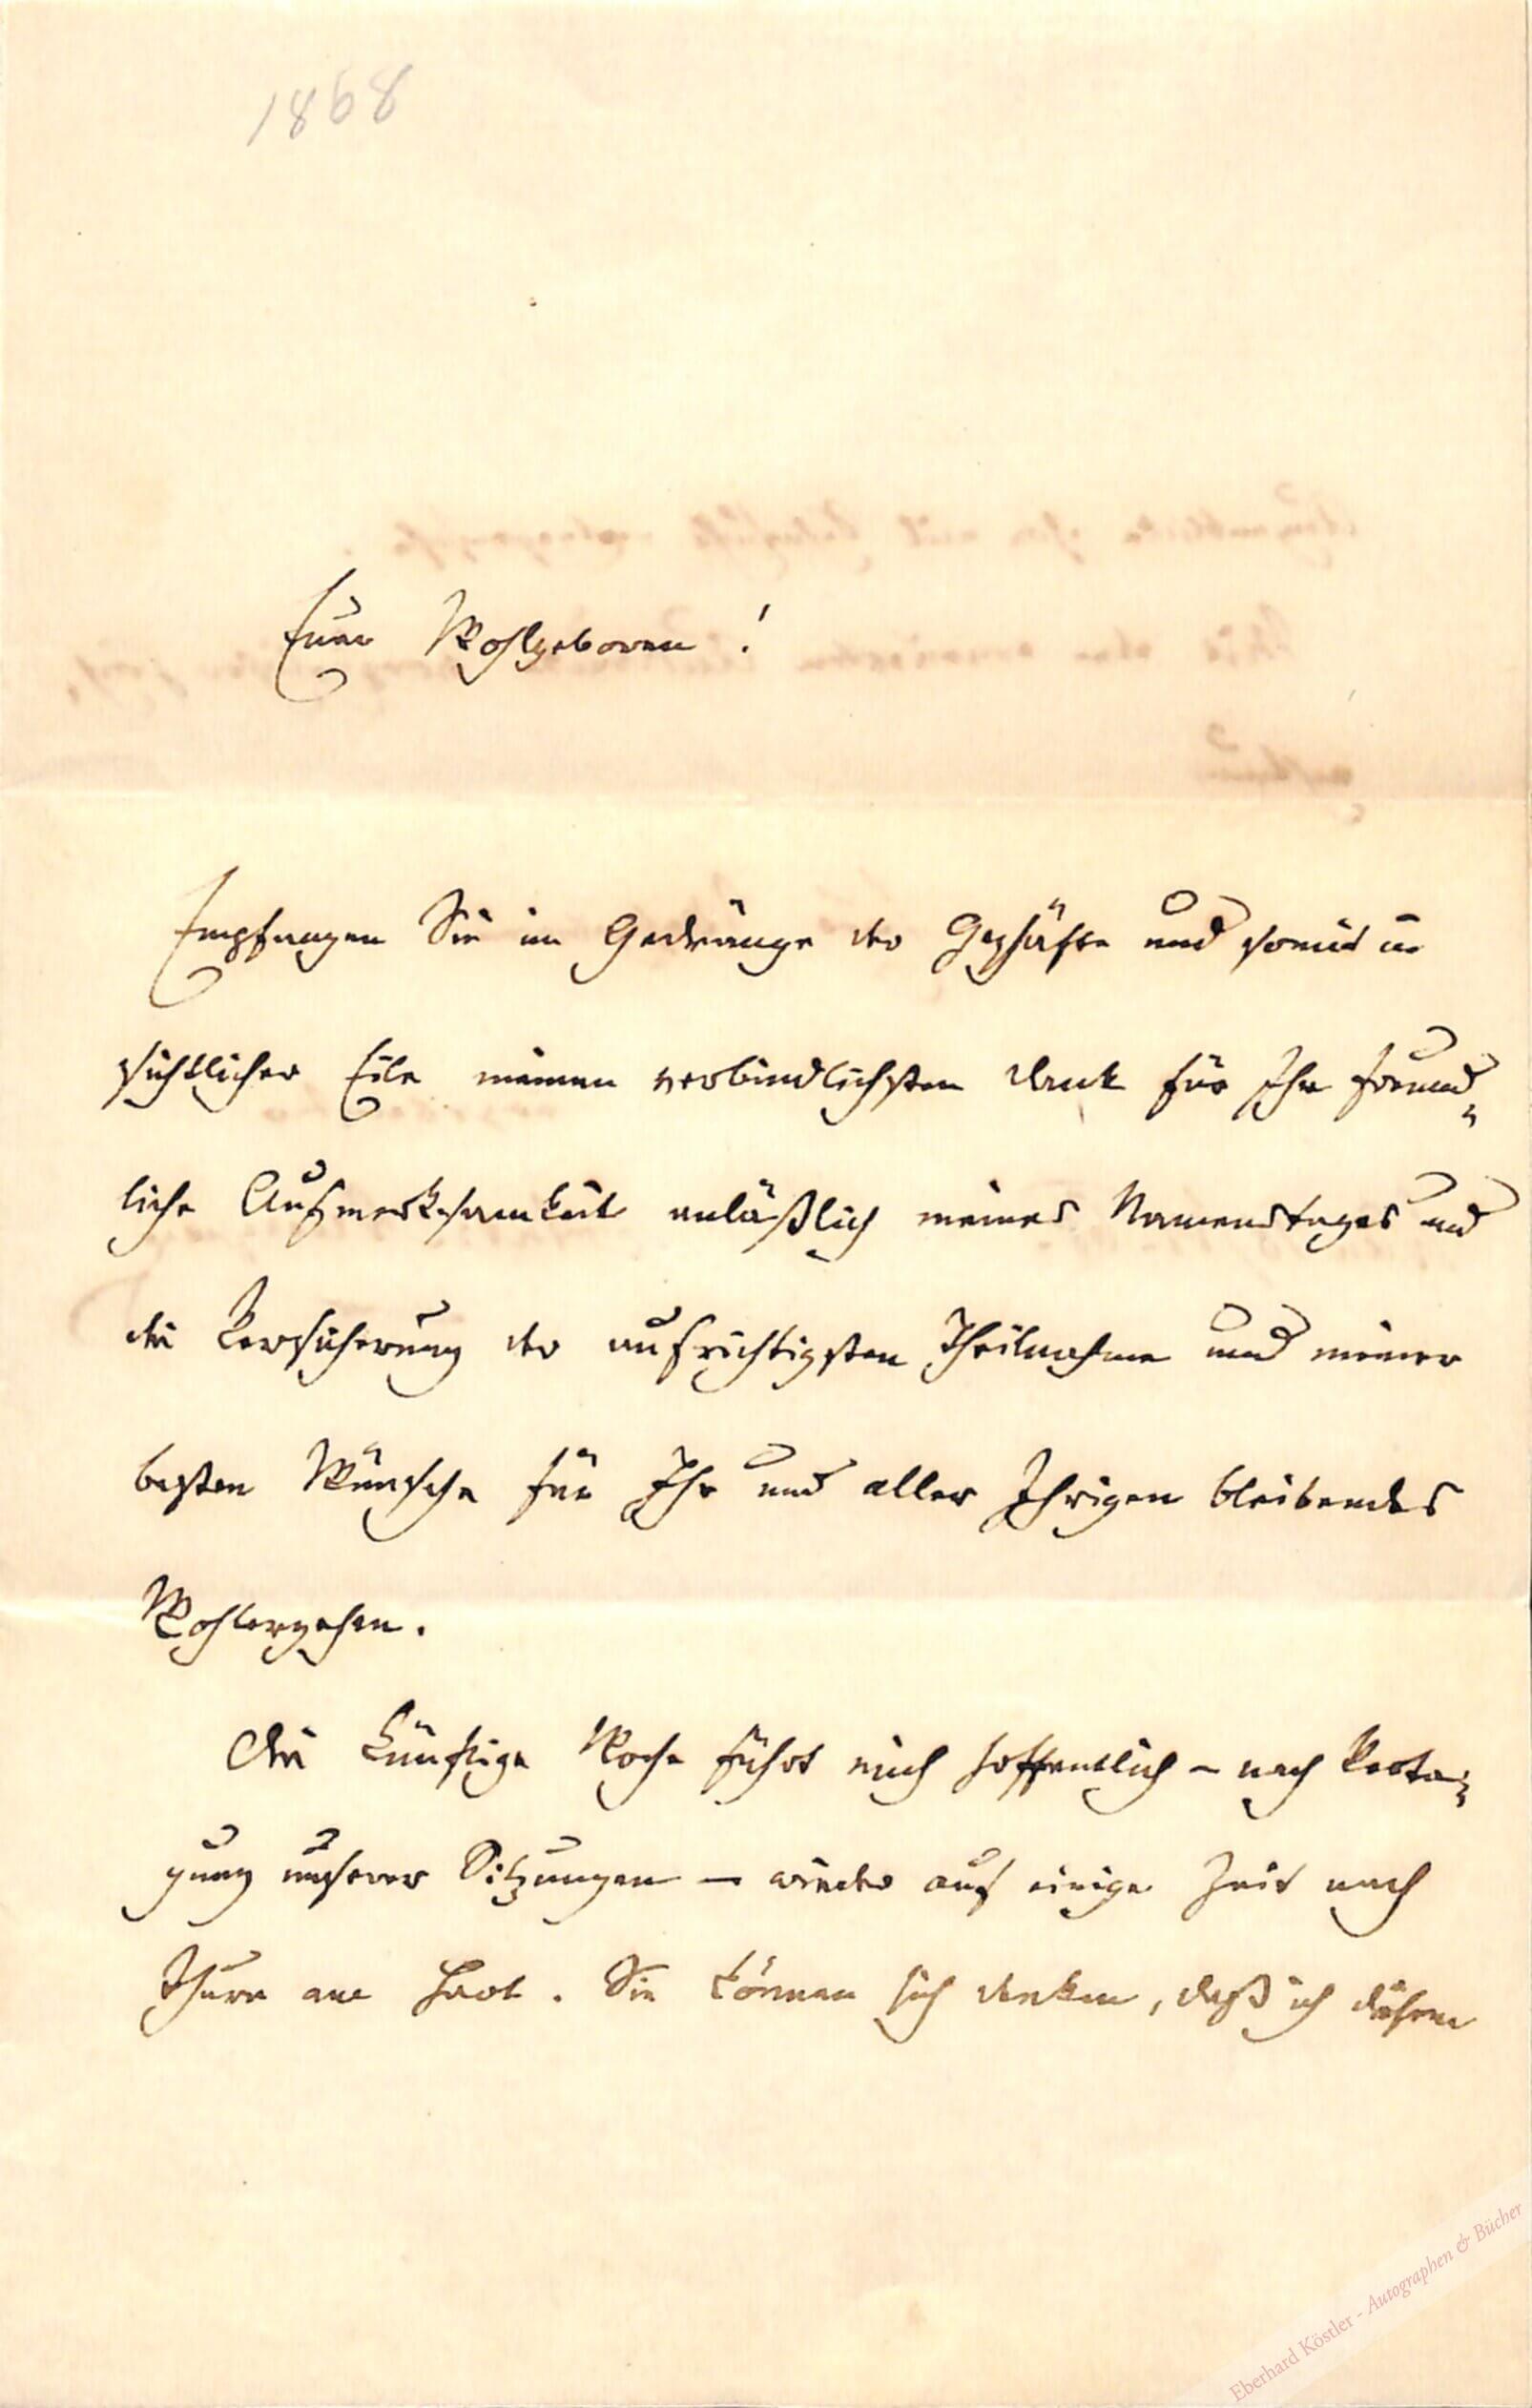 1868
Euer Wohlgeboren!
Empfangen Sie im Gedränge der Geschäfte und somit in
sichtlicher Eile meinen verbindlichsten Dank für Ihre freund=
liche Aufmerksamkeit anläßlich meines Namenstages und
die Versicherung der aufrichtigsten Theilnahme und meiner
besten Wünsche für Ihr und aller Ihrigen bleibendes
Wohlergehen.
Die künftige Woche führt mich hoffentlich – nach Verta=
gung unserer Sitzungen – wieder auf einige Zeit nach
Thurn am Hart. Sie können sich denken, daß ich diesem
Eberhard Köstler - Autographen & Bücher